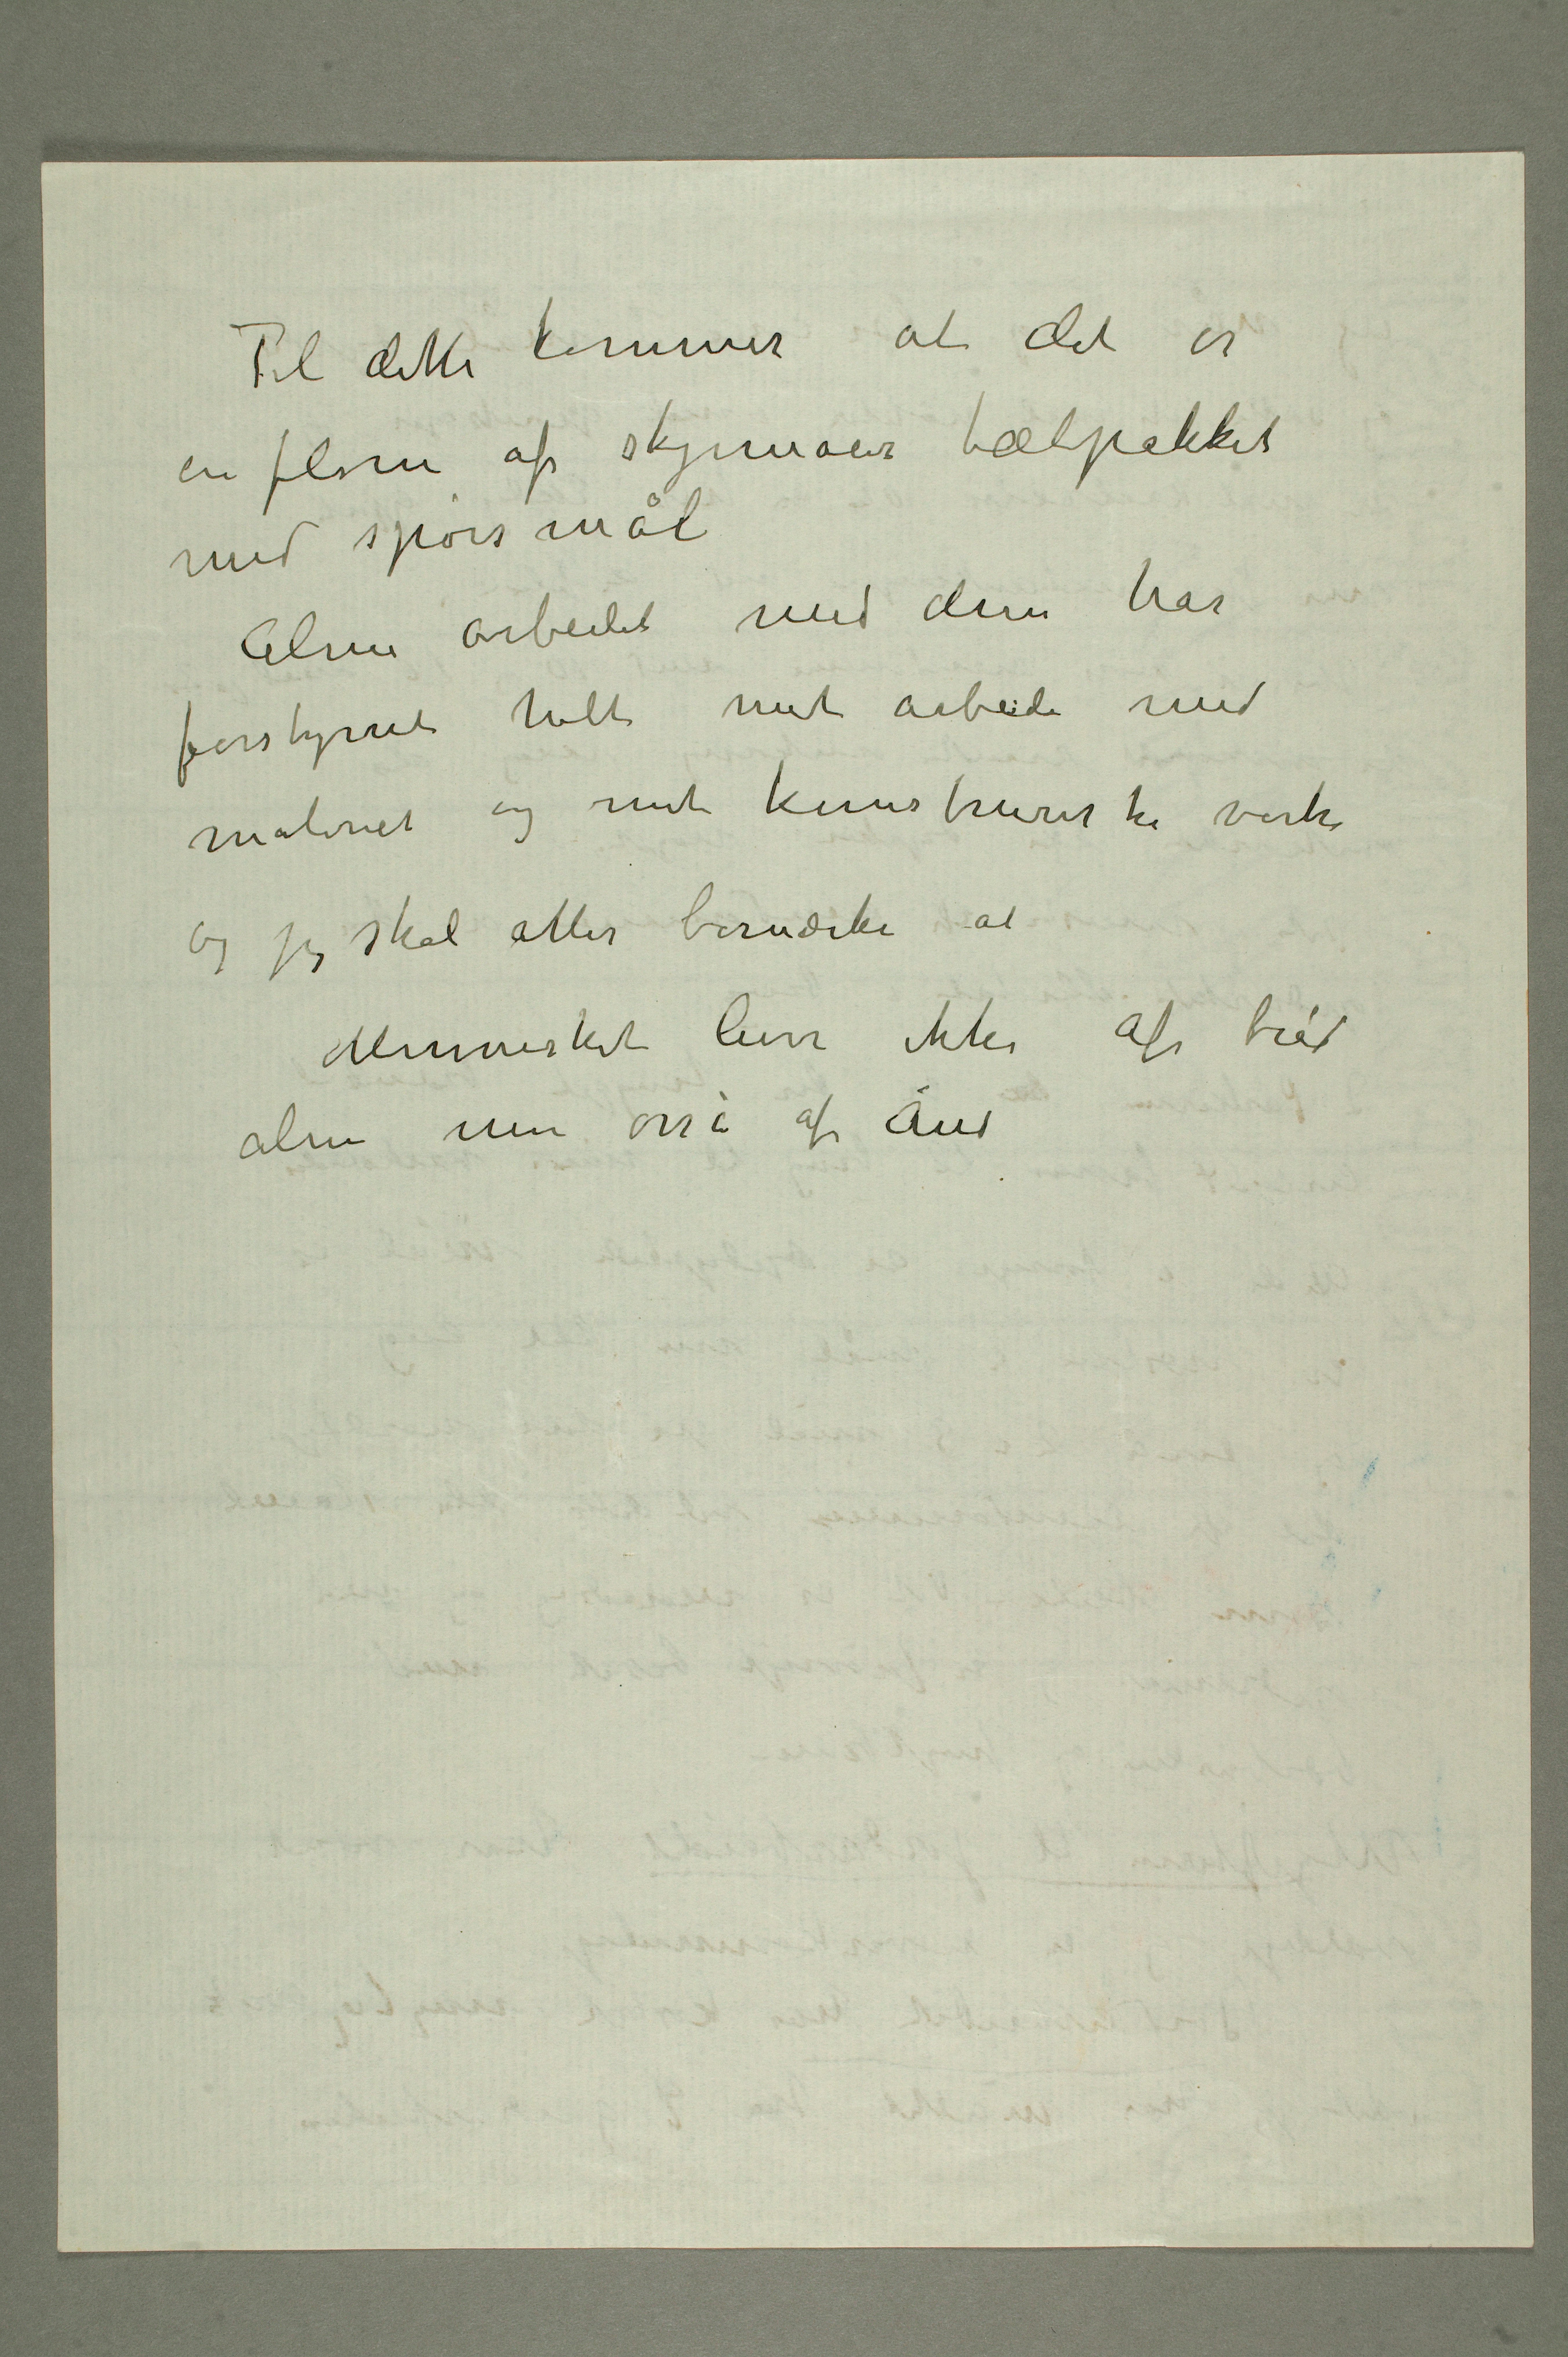 Til dette kommer at det er
en flom af skjemaer tætpakket
med spørsmål
Alene arbeidet med dem har
forstyrret helt mit arbeide med
maleriet og mit kunstneriske verk
og jeg skal atter bemærke at
Mennesket lever ikke af brød
alene men også af Ånd